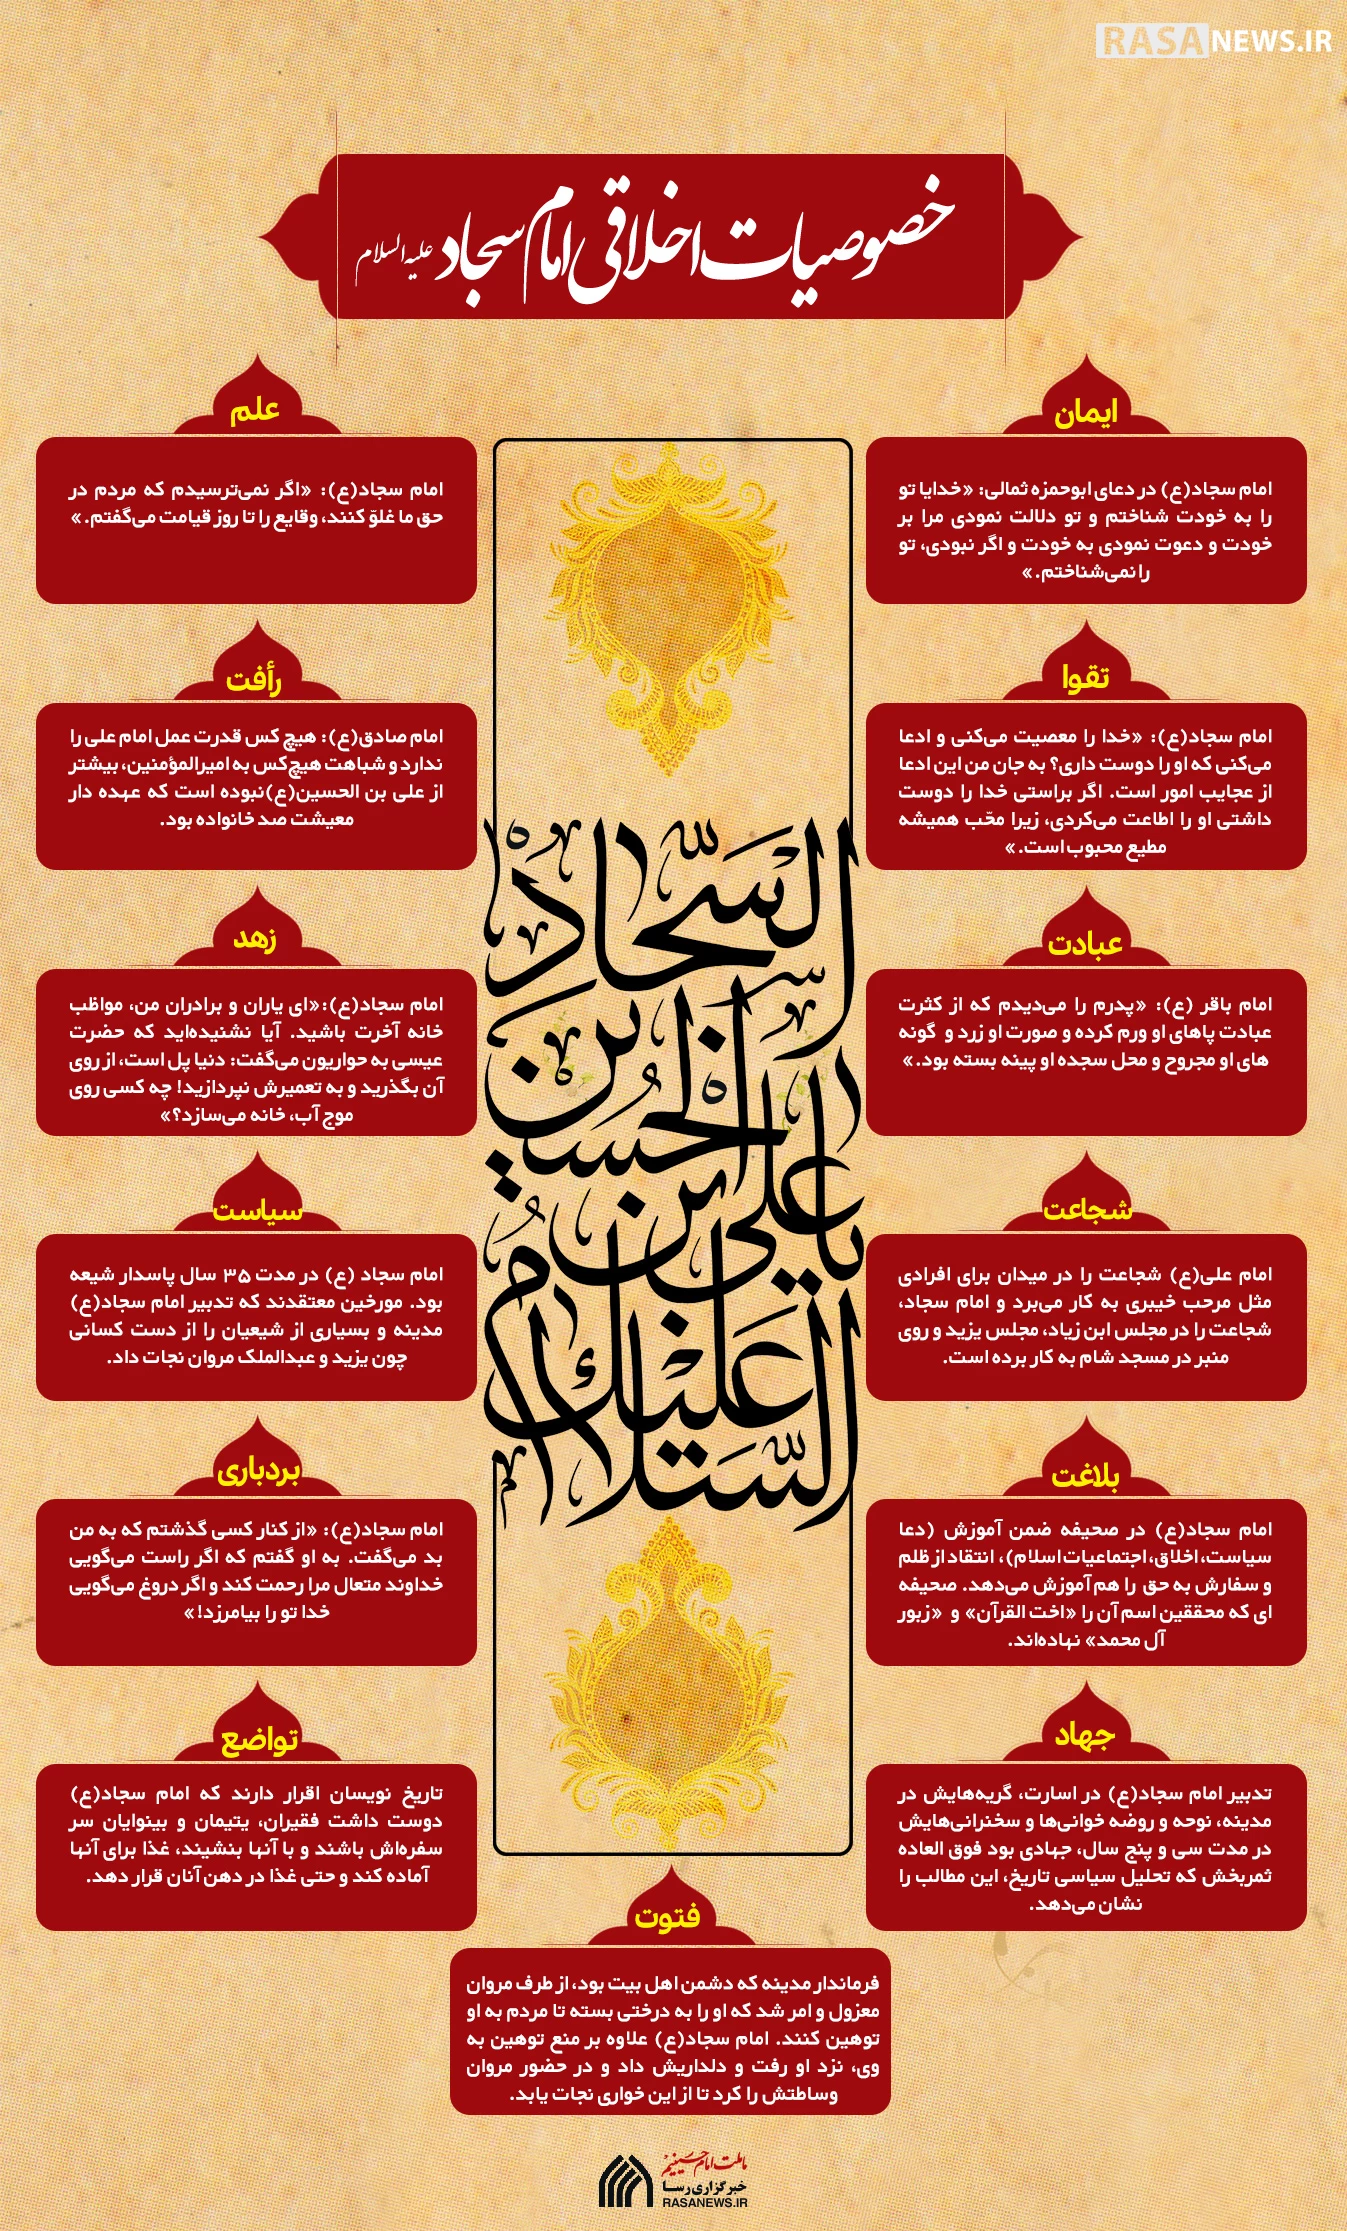 RASANEWS.IR
خصوصیات اخلاقی امام سجاد علیه السلام
ایمان
امام سجاد(ع) در دعای ابوحمزه ثمالی: «خدایا تو
را به خودت شناختم و تو دلالت نمودی مرا بر
خودت و دعوت نمودی به خودت و اگر نبودی، تو
را نمی‌شناختم.»
علم
امام سجاد(ع): «اگر نمی‌ترسیدم که مردم در
حق ما غلوّ کنند، وقایع را تا روز قیامت می‌گفتم.»
تقوا
امام سجاد(ع): «خدا را معصیت می‌کنی و ادعا
می‌کنی که او را دوست داری؟ به جان من این ادعا
از عجایب امور است. اگر براستی خدا را دوست
داشتی او را اطاعت می‌کردی، زیرا محّب همیشه
مطیع محبوب است.»
رأفت
امام صادق(ع): هیچ کس قدرت عمل امام علی را
ندارد و شباهت هیچ‌کس به امیرالمؤمنین، بیشتر
از علی بن الحسین(ع)نبوده است که عهده دار
معیشت صد خانواده بود.
عبادت
امام باقر (ع): «پدرم را می‌دیدم که از کثرت
عبادت پاهای او ورم کرده و صورت او زرد و گونه
های او مجروح و محل سجده او پینه بسته بود.»
زهد
امام سجاد(ع):«ای یاران و برادران من، مواظب
خانه آخرت باشید. آیا نشنیده‌اید که حضرت
عیسی به حواریون می‌گفت: دنیا پل است، از روی
آن بگذرید و به تعمیرش نپردازید! چه کسی روی
موج آب، خانه می‌سازد؟»
السجاد
بن الحسین
یا علی ابن
السلام علیک
شجاعت
امام علی(ع) شجاعت را در میدان برای افرادی
مثل مرحب خیبری به کار می‌برد و امام سجاد،
شجاعت را در مجلس ابن زیاد، مجلس یزید و روی
منبر در مسجد شام به کار برده است.
سیاست
امام سجاد (ع) در مدت ۳۵ سال پاسدار شیعه
بود. مورخین معتقدند که تدبیر امام سجاد(ع)
مدینه و بسیاری از شیعیان را از دست کسانی
چون یزید و عبدالملک مروان نجات داد.
بلاغت
امام سجاد(ع) در صحیفه ضمن آموزش (دعا
سیاست، اخلاق، اجتماعیات اسلام)، انتقاد از ظلم
و سفارش به حق را هم آموزش می‌دهد. صحیفه
ای که محققین اسم آن را «اخت القرآن» و «زبور
آل محمد» نهاده‌اند.
بردباری
امام سجاد(ع): «از کنار کسی گذشتم که به من
بد می‌گفت. به او گفتم که اگر راست می‌گویی
خداوند متعال مرا رحمت کند و اگر دروغ می‌گویی
خدا تو را بیامرزد!»
جهاد
تدبیر امام سجاد(ع) در اسارت، گریه‌هایش در
مدینه، نوحه و روضه خوانی‌ها و سخنرانی‌هایش
در مدت سی و پنج سال، جهادی بود فوق العاده
ثمربخش که تحلیل سیاسی تاریخ، این مطالب را
نشان می‌دهد.
تواضع
تاریخ نویسان اقرار دارند که امام سجاد(ع)
دوست داشت فقیران، یتیمان و بینوایان سر
سفره‌اش باشند و با آنها بنشیند، غذا برای آنها
آماده کند و حتی غذا در دهن آنان قرار دهد.
فتوت
فرماندار مدینه که دشمن اهل بیت بود، از طرف مروان
معزول و امر شد که او را به درختی بسته تا مردم به او
توهین کنند. امام سجاد(ع) علاوه بر منع توهین به
وی، نزد او رفت و دلداریش داد و در حضور مروان
وساطتش را کرد تا از این خواری نجات یابد.
ما ملت امام حسینیم
خبرگزاری رسا
RASANEWS.IR